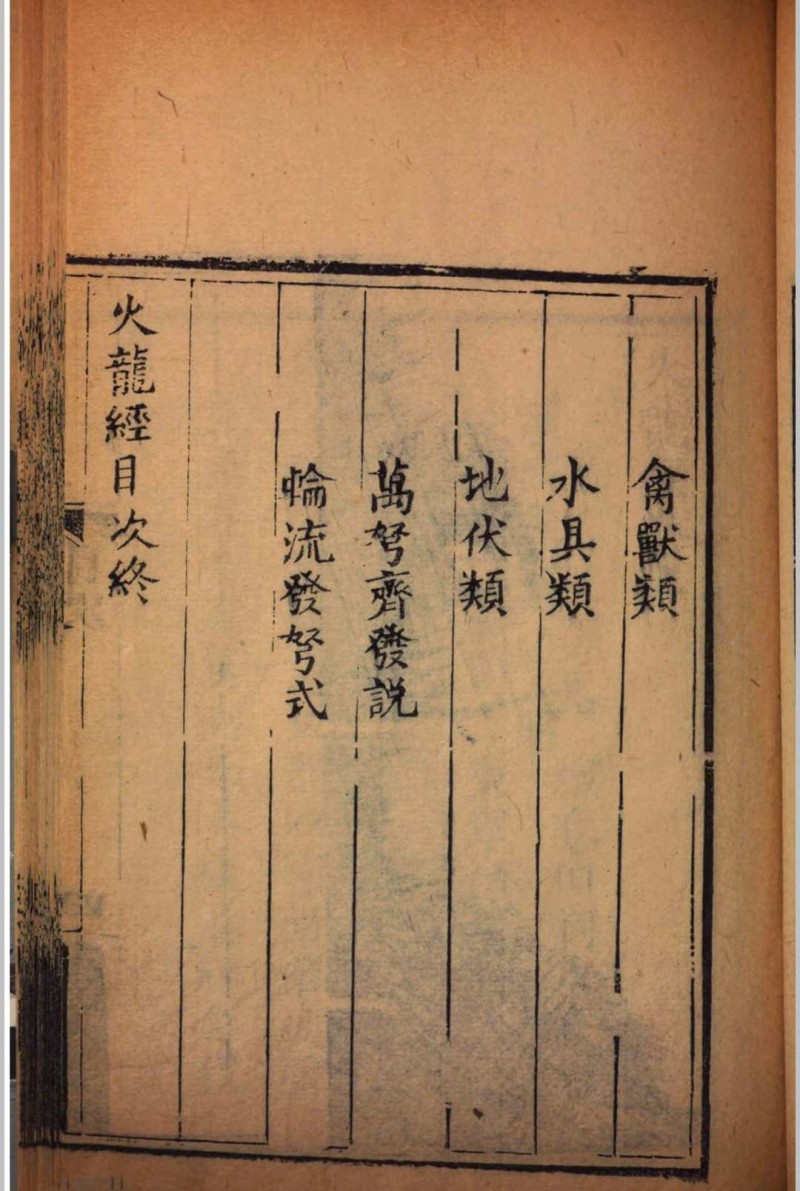 禽獸類
水具類
地伏類
萬弩齊發説
輪流發弩式
火龍經目次終